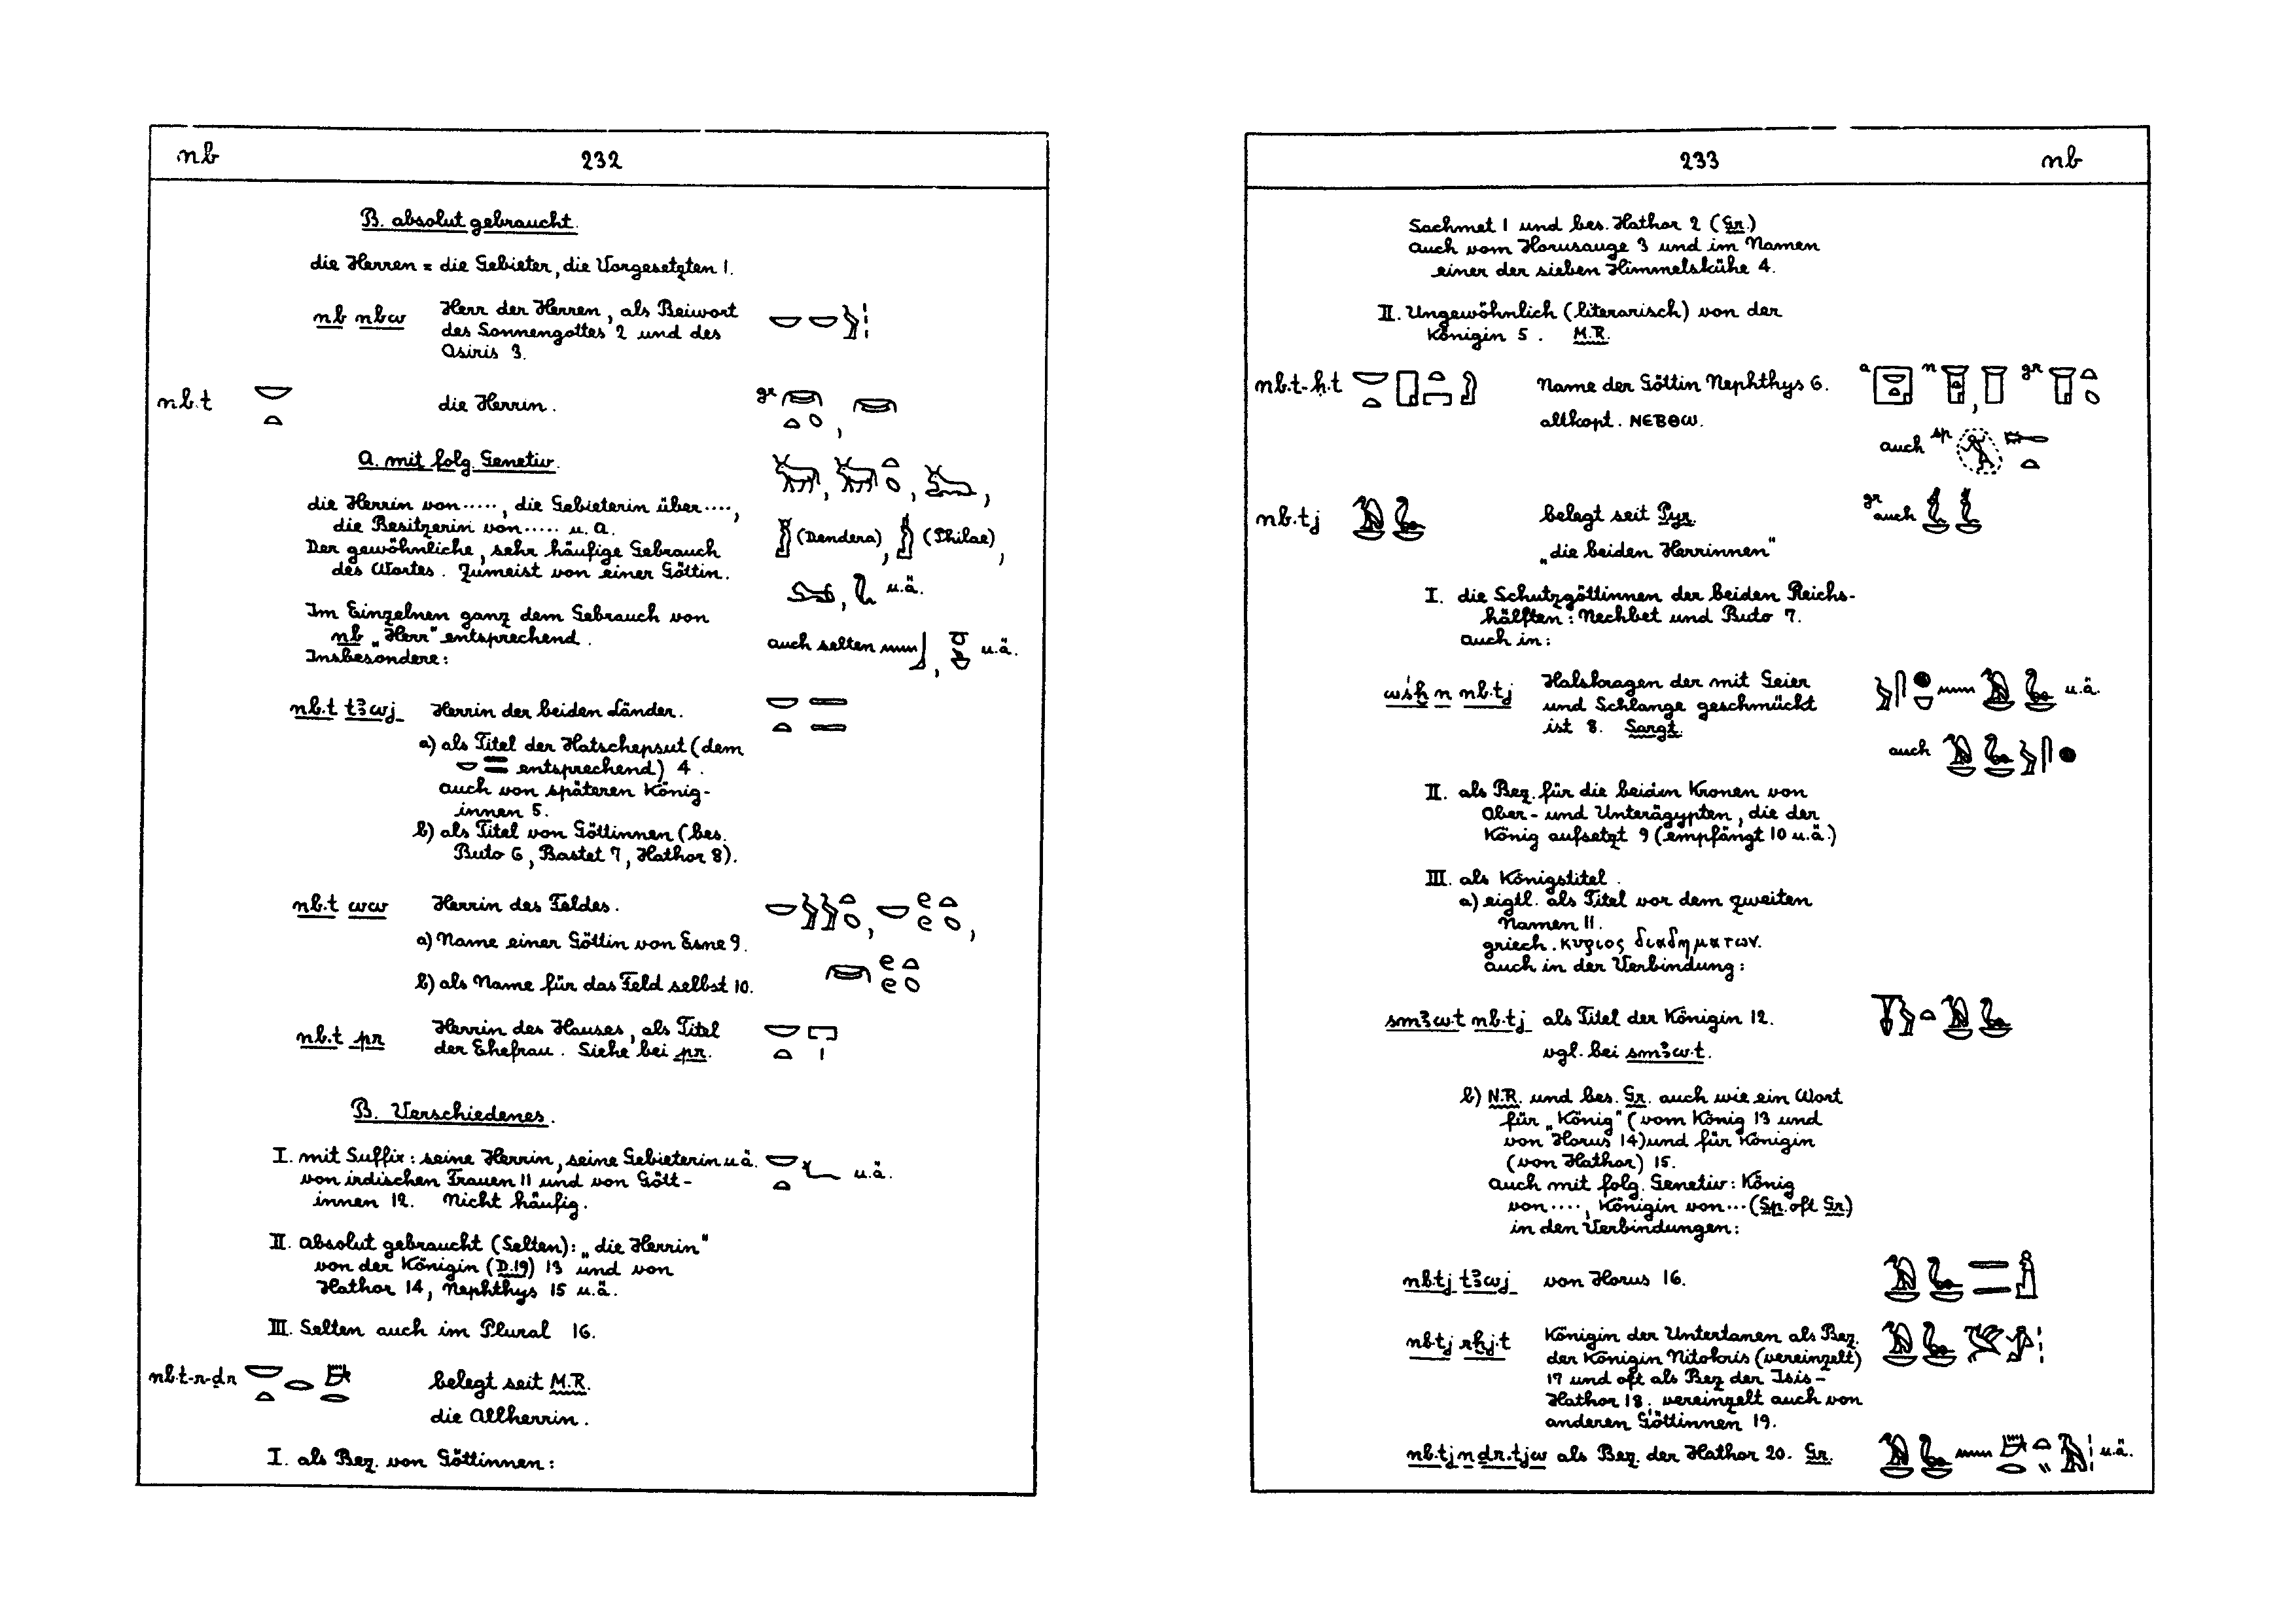 nb 232
B. absolut gebraucht.
die Herren = die Gebieter, die Vorgesetzten 1.
nb nbw Herr der Herren, als Beiwort
des Sonnengottes 2 und des
Osiris 3.
nb.t die Herrin. gr ,
A. mit folg. Genetiv.
die Herrin von ....., die Gebieterin über ....,
die Besitzerin von ..... u. a.
Der gewöhnliche, sehr häufige Gebrauch
des Wortes. Zumeist von einer Göttin.
(Dendera), (Philae),
u.ä.
Im Einzelnen ganz dem Gebrauch von
nb „Herr“ entsprechend.
Insbesondere:
auch selten , u.ä.
nb.t tꜣwj Herrin der beiden Länder.
a) als Titel der Hatschepsut (dem
entsprechend) 4.
auch von späteren König-
innen 5.
b) als Titel von Göttinnen (bes.
Buto 6, Bastet 7, Hathor 8).
nb.t ww Herrin des Feldes.
a) Name einer Göttin von Esne 9.
b) als Name für das Feld selbst 10.
nb.t pr Herrin des Hauses, als Titel
der Ehefrau. Siehe bei pr.
B. Verschiedenes.
I. mit Suffix: seine Herrin, seine Gebieterin u.ä. u.ä.
von irdischen Frauen 11 und von Gött-
innen 12. Nicht häufig.
II. absolut gebraucht (Selten): „die Herrin“
von der Königin (D.19) 13 und von
Hathor 14, Nephthys 15 u.ä.
III. Selten auch im Plural 16.
nb.t-r-ḏr belegt seit M.R.
die Allherrin.
I. als Bez. von Göttinnen:
233 nb
Sachmet 1 und bes. Hathor 2 (Gr.)
auch vom Horusauge 3 und im Namen
einer der sieben Himmelskühe 4.
II. Ungewöhnlich (literarisch) von der
Königin 5. M.R.
nb.t-ḥ.t Name der Göttin Nephthys 6. a n , gr
altkopt. ⲛⲉⲃⲑⲱ.
auch sp
nb.tj belegt seit Pyr. gr auch
„die beiden Herrinnen“
I. die Schutzgöttinnen der beiden Reichs-
hälften: Nechbet und Buto 7.
auch in:
wśḫ n nb.tj Halskragen der mit Geier
und Schlange geschmückt
ist 8. Sargt.
u.ä.
auch
II. als Bez. für die beiden Kronen von
Ober- und Unterägypten, die der
König aufsetzt 9 (empfängt 10 u.ä.)
III. als Königstitel.
a) eigtl. als Titel vor dem zweiten
Namen 11.
griech. κυριος διαδηματων.
auch in der Verbindung:
smꜣw.t nb.tj als Titel der Königin 12.
vgl. bei smꜣw.t.
b) N.R. und bes. Gr. auch wie ein Wort
für „König“ (vom König 13 und
von Horus 14) und für Königin
(von Hathor) 15.
auch mit folg. Genetiv: König
von ...., Königin von ... (Sp. oft Gr.)
in den Verbindungen:
nb.tj tꜣwj von Horus 16.
nb.tj rḫj.t Königin der Untertanen als Bez.
der Königin Nitokris (vereinzelt)
17 und oft als Bez der Isis-
Hathor 18; vereinzelt auch von
anderen Göttinnen 19.
nb.tj n ḏr.tjw als Bez. der Hathor 20. Gr. u.ä.